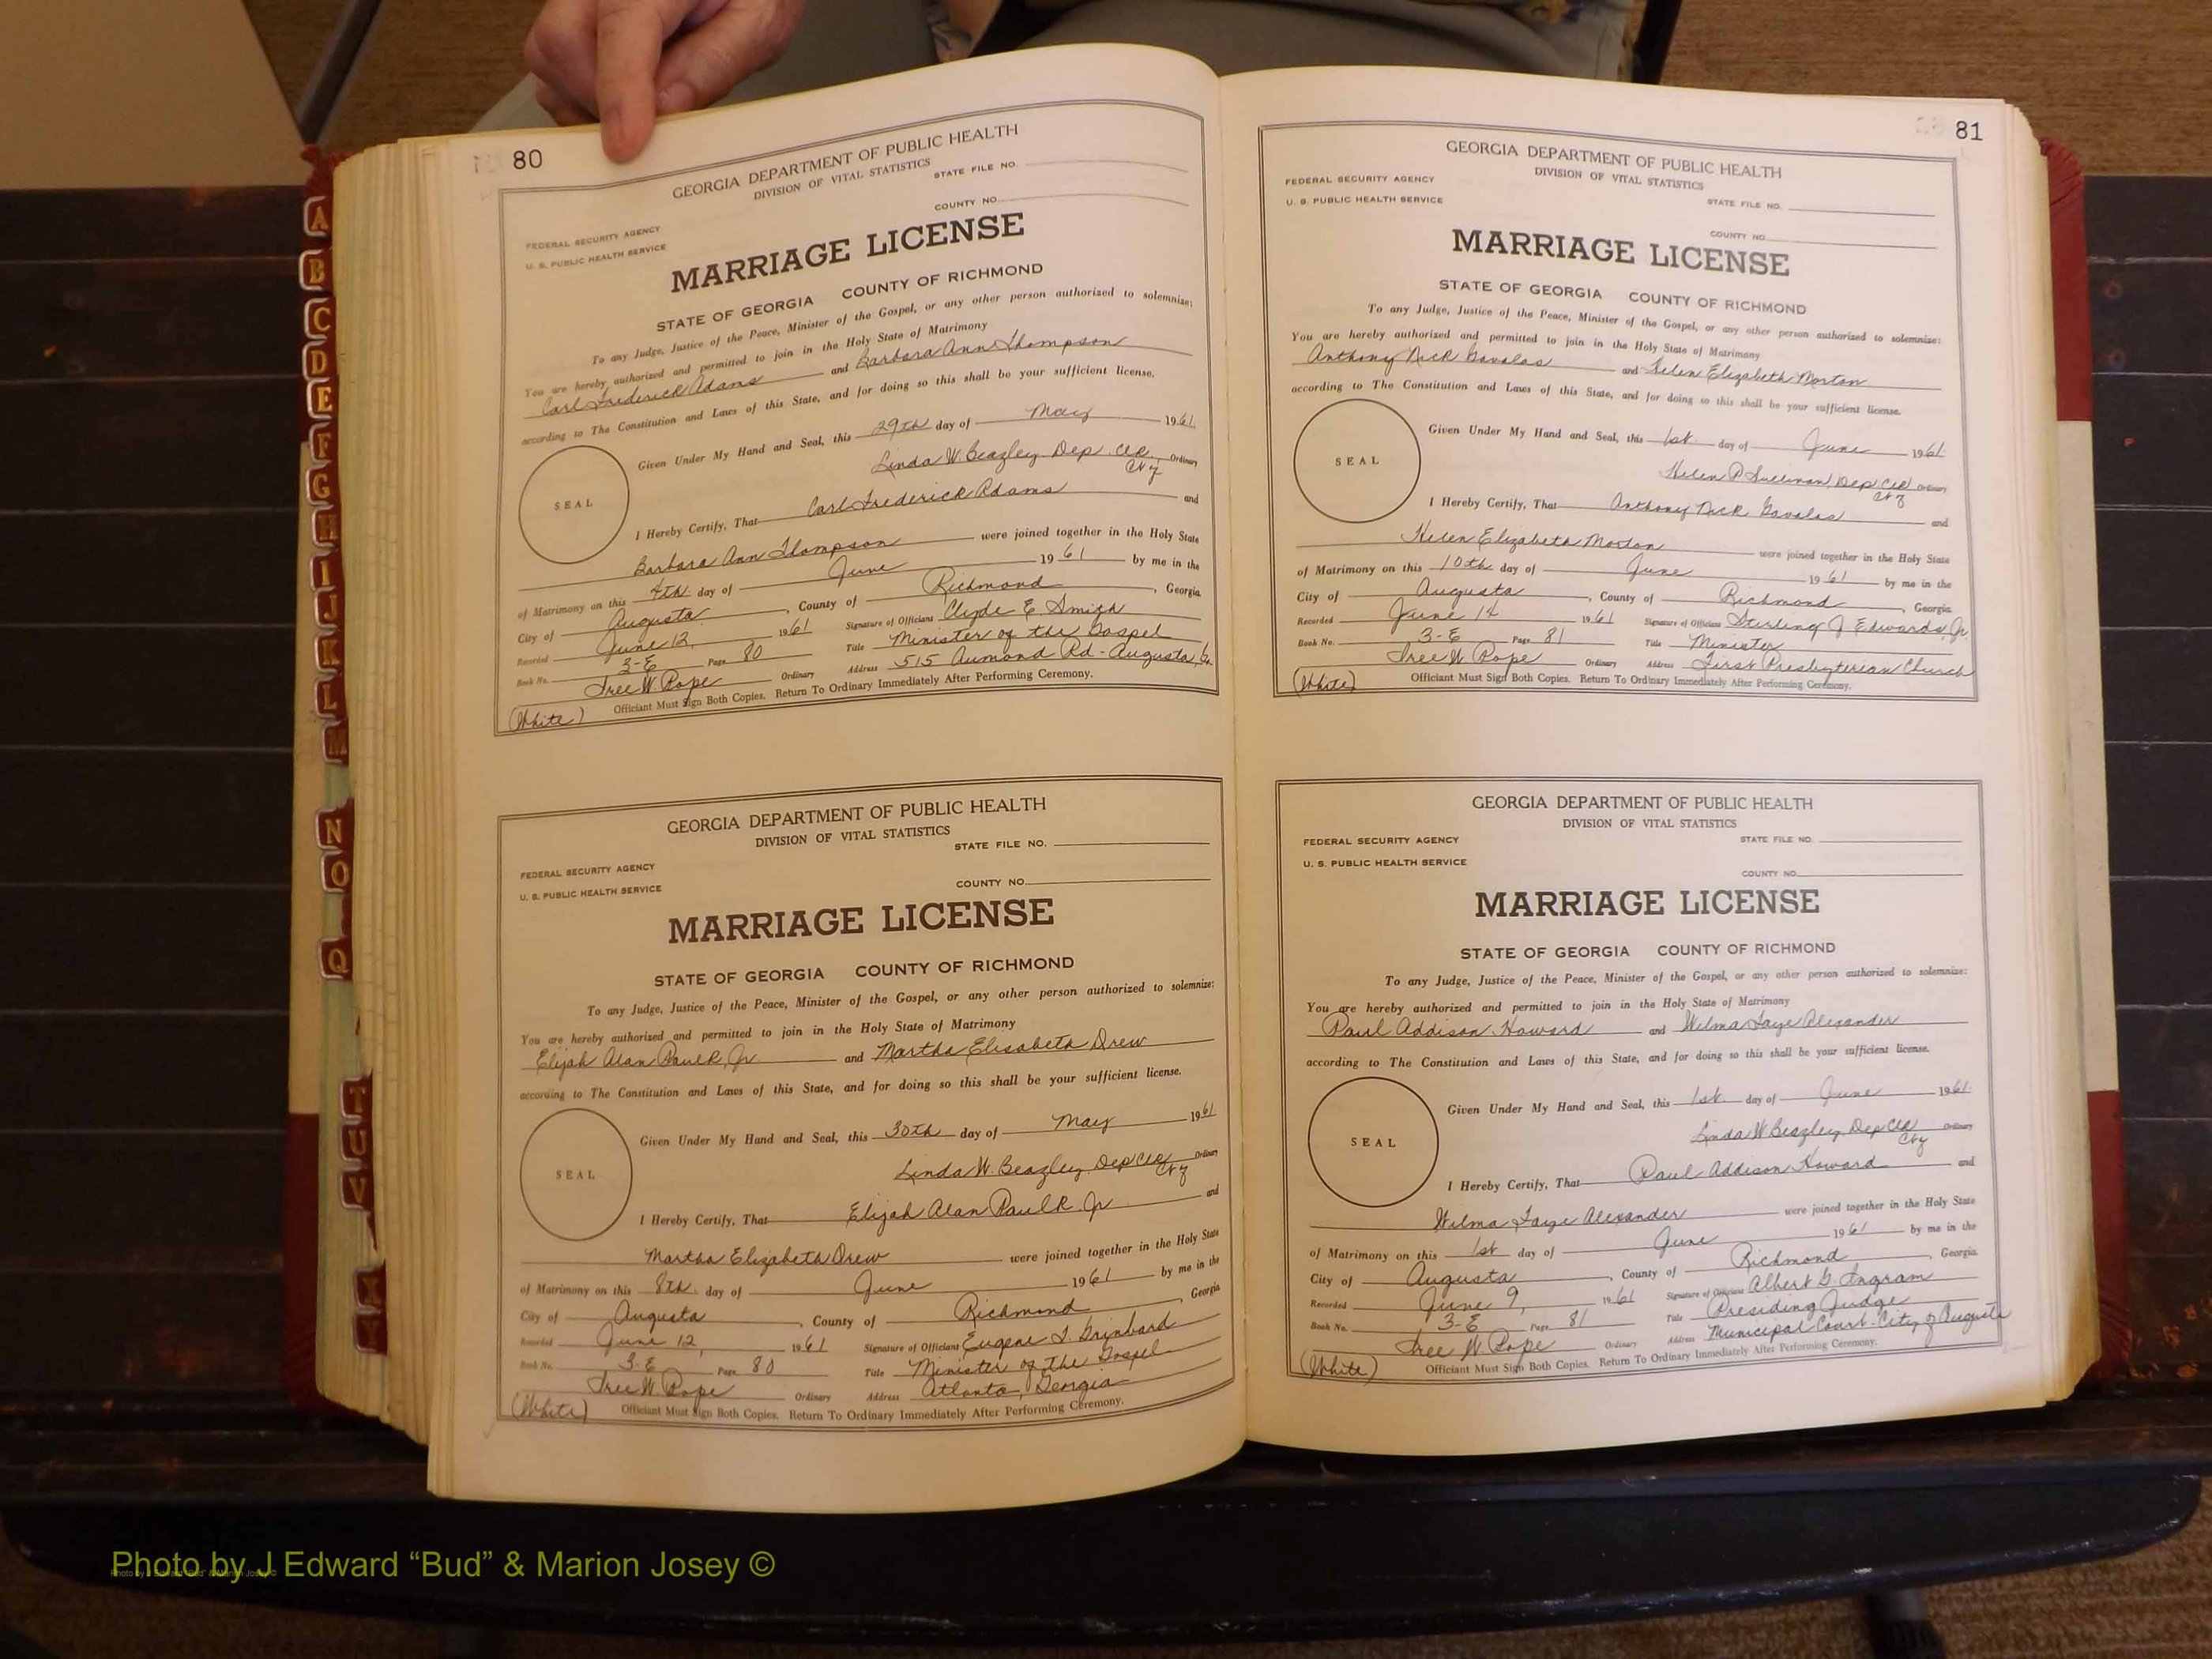 80
GEORGIA DEPARTMENT OF PUBLIC HEALTH
DIVISION OF VITAL STATISTICS
STATE FILE NO.
COUNTY NO.
FEDERAL SECURITY AGENCY
U. S. PUBLIC HEALTH SERVICE
MARRIAGE LICENSE
STATE OF GEORGIA COUNTY OF RICHMOND
To any Judge, Justice of the Peace, Minister of the Gospel, or any other person authorized to solemnize:
You are hereby authorized and permitted to join in the Holy State of Matrimony
Carl Frederick Adams and Barbara Ann Thompson
according to The Constitution and Laws of this State, and for doing so this shall be your sufficient license.
SEAL
Given Under My Hand and Seal, this 29th day of May 1961
Linda W. Beazley Dep Clk Ordinary
I Hereby Certify, That Carl Frederick Adams and
Barbara Ann Thompson were joined together in the Holy State
of Matrimony on this 4th day of June 1961 by me in the
City of Augusta, County of Richmond, Georgia.
Recorded June 12, 1961 Signature of Officiant Clyde E. Smith
Book No. 3-E Page 80 Title Minister of the Gospel
Tree W Pope Ordinary Address 515 Aumond Rd - Augusta, Ga
(White) Officiant Must Sign Both Copies. Return To Ordinary Immediately After Performing Ceremony.
GEORGIA DEPARTMENT OF PUBLIC HEALTH
DIVISION OF VITAL STATISTICS
STATE FILE NO.
COUNTY NO.
FEDERAL SECURITY AGENCY
U. S. PUBLIC HEALTH SERVICE
MARRIAGE LICENSE
STATE OF GEORGIA COUNTY OF RICHMOND
To any Judge, Justice of the Peace, Minister of the Gospel, or any other person authorized to solemnize:
You are hereby authorized and permitted to join in the Holy State of Matrimony
Elijah Alan Paulk, Jr and Martha Elisabeth Drew
according to The Constitution and Laws of this State, and for doing so this shall be your sufficient license.
SEAL
Given Under My Hand and Seal, this 30th day of May 1961
Linda W. Beazley, Dep Clk Ordinary
I Hereby Certify, That Elijah Alan Paulk Jr and
Martha Elizabeth Drew were joined together in the Holy State
of Matrimony on this 8th day of June 1961 by me in the
City of Augusta, County of Richmond, Georgia
Recorded June 12, 1961 Signature of Officiant Eugene L.
Book No. 3-E Page 80 Title Minister of the Gospel
Tree W Pope Ordinary Address Atlanta, Georgia
(White) Officiant Must Sign Both Copies. Return To Ordinary Immediately After Performing Ceremony.
81
GEORGIA DEPARTMENT OF PUBLIC HEALTH
DIVISION OF VITAL STATISTICS
FEDERAL SECURITY AGENCY
U. S. PUBLIC HEALTH SERVICE
STATE FILE NO.
COUNTY NO.
MARRIAGE LICENSE
STATE OF GEORGIA COUNTY OF RICHMOND
To any Judge, Justice of the Peace, Minister of the Gospel, or any other person authorized to solemnize:
You are hereby authorized and permitted to join in the Holy State of Matrimony
Anthony Nick Gavalas and Helen Elizabeth Morton
according to The Constitution and Laws of this State, and for doing so this shall be your sufficient license.
SEAL
Given Under My Hand and Seal, this 1st day of June 1961
Helen P Sullivan, Dep Clk Ordinary
I Hereby Certify, That Anthony Nick Gavalas and
Helen Elizabeth Morton were joined together in the Holy State
of Matrimony on this 10th day of June 1961 by me in the
City of Augusta, County of Richmond, Georgia
Recorded June 14 1961 Signature of Officiant Sterling J Edwards, Jr.
Book No. 3-E Page 81 Title Minister
Tree W Pope Ordinary Address First Presbyterian Church
(White) Officiant Must Sign Both Copies. Return To Ordinary Immediately After Performing Ceremony.
GEORGIA DEPARTMENT OF PUBLIC HEALTH
DIVISION OF VITAL STATISTICS
FEDERAL SECURITY AGENCY
U. S. PUBLIC HEALTH SERVICE
STATE FILE NO.
COUNTY NO.
MARRIAGE LICENSE
STATE OF GEORGIA COUNTY OF RICHMOND
To any Judge, Justice of the Peace, Minister of the Gospel, or any other person authorized to solemnize:
You are hereby authorized and permitted to join in the Holy State of Matrimony
Paul Addison Howard and Wilma Faye Alexander
according to The Constitution and Laws of this State, and for doing so this shall be your sufficient license.
SEAL
Given Under My Hand and Seal, this 1st day of June 1961
Linda W Beazley Dep Clk Ordinary
I Hereby Certify, That Paul Addison Howard and
Wilma Faye Alexander were joined together in the Holy State
of Matrimony on this 1st day of June 1961 by me in the
City of Augusta, County of Richmond, Georgia.
Recorded June 9, 1961 Signature of Officiant Albert G. Ingram
Book No. 3-E Page 81 Title Presiding Judge
Tree W Pope Ordinary Address Municipal Court - City of Augusta
(White) Officiant Must Sign Both Copies. Return To Ordinary Immediately After Performing Ceremony.
A
B
C
D
E
F
G
H
I
J
K
L
M
N
O
Q
T
U
V
Photo by J Edward “Bud” & Marion Josey ©
Photo by J Edward "Bud" & Marion Josey ©